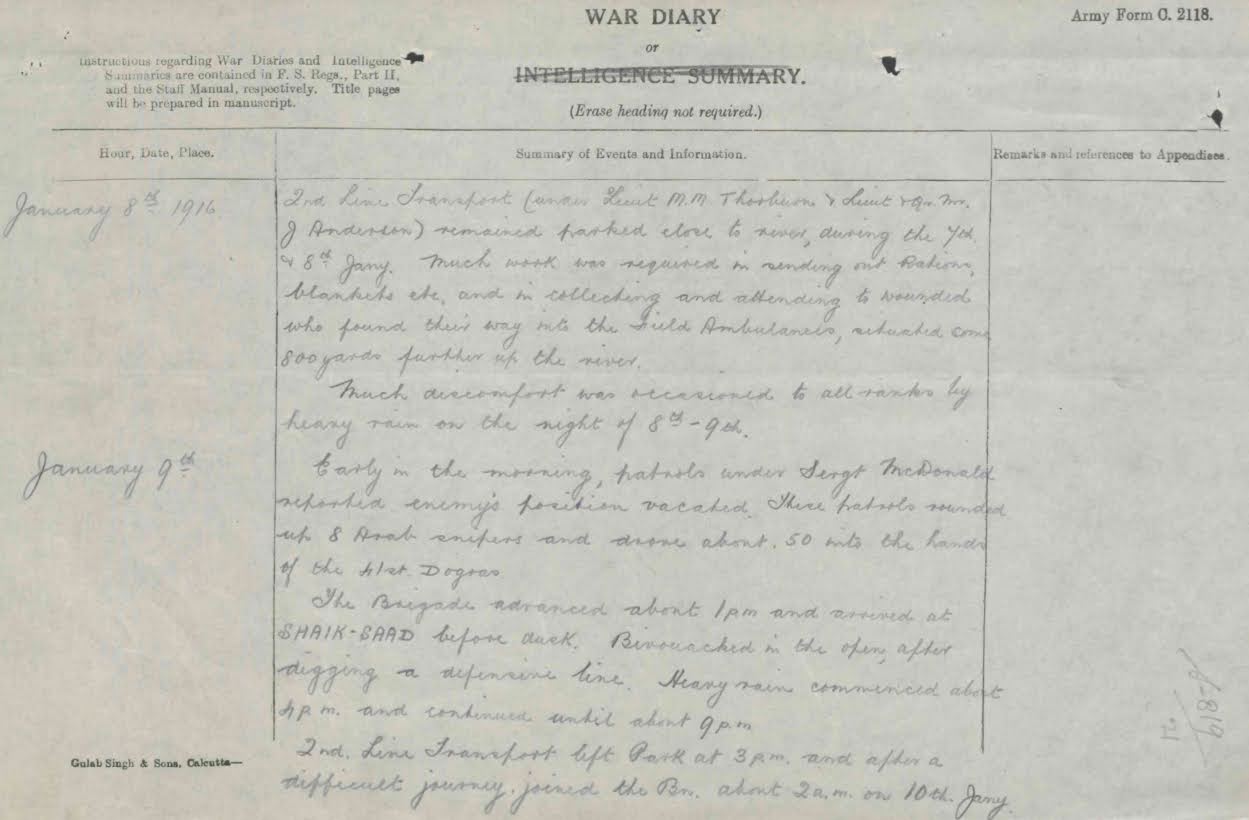 WAR DIARY
or
INTELLIGENCE SUMMARY.
(Erase heading not required.)
Army Form C. 2118.
Instructions regarding War Diaries and Intelligence
Summaries are contained in F. S. Regs., Part II,
and the Staff Manual, respectively. Title pages
will be prepared in manuscript.
Hour, Date, Place.
Summary of Events and Information.
Remarks and references to Appendices.
January 8th 1916
2nd Line Transport (under Lieut M.M. Thorburn & Lieut & Qr. Mr.
J Anderson) remained parked close to river, during the 7th
& 8th Jany. Much work was required in sending out Rations,
blankets etc, and in collecting and attending to wounded
who found their way into the Field Ambulances, situated some
800 yards further up the river.
Much discomfort was occasioned to all ranks by
heavy rain on the night of 8th - 9th.
January 9th
Early in the morning, patrols under Sergt McDonald
reported enemy's position vacated. These patrols rounded
up 8 Arab snipers and drove about 50 into the hands
of the 41st. Dogras
The Brigade advanced about 1pm and arrived at
SHAIK-SAAD before dusk. Bivouacked in the open, after
digging a defensive line. Heavy rain commenced about
4p.m. and continued until about 9pm
2nd. Line Transport left Park at 3p.m. and after a
difficult journey joined the Bn. about 2a.m. on 10th. Jany.
Gulab Singh & Sons, Calcutta—